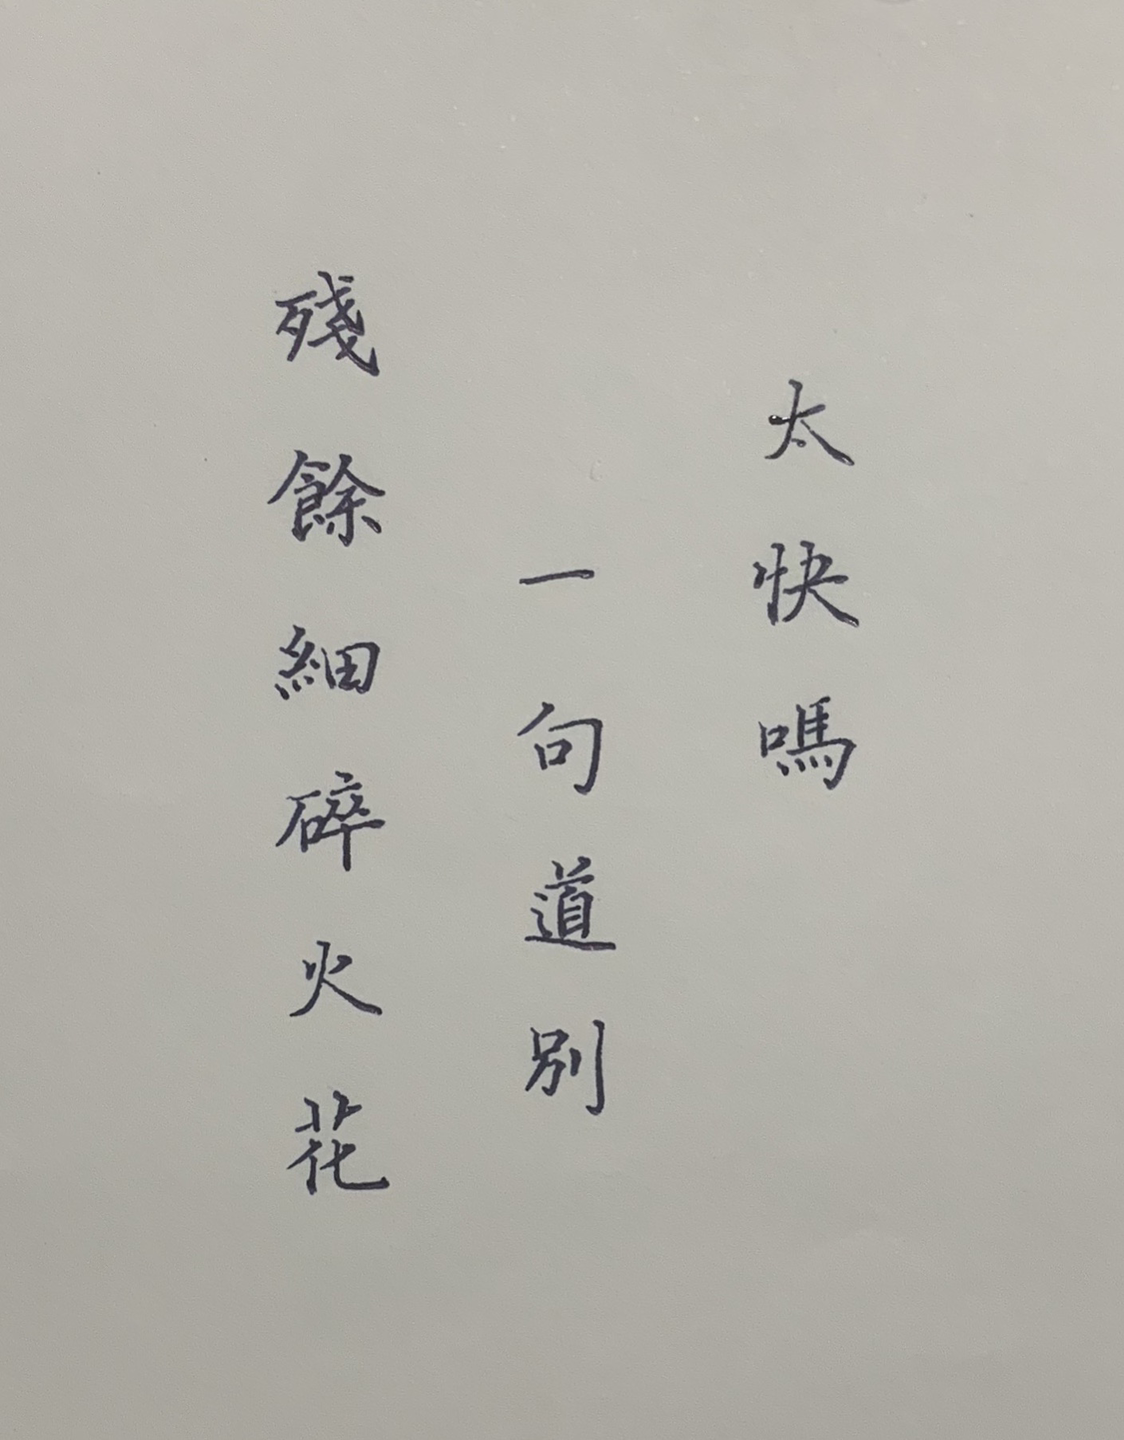 太快嗎
一句道別
殘餘細碎火花